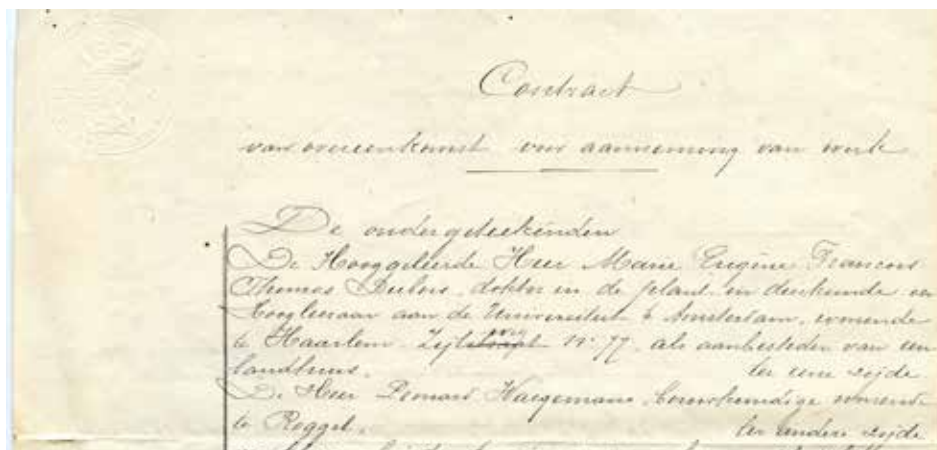 Contract
van overeenkomst voor aanneming van werk
De ondergeteekenden
De Hooggeleerde Heer Marie Eugène Francois
Thomas Dubois, dokter in de plant en dierkunde en
Hoogleeraar aan de Universiteit te Amsterdam, wonende
te Haarlem Zijlweg No 77, als aanbesteder van een
landhuis, ter eene zijde
De Heer Leonard Haegemans, bouwkundige wonende
te Roggel, ter andere zijde